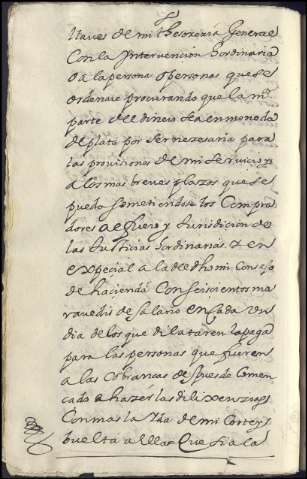 llaves de mi thesoreria General
Con la Yntervencion hordinaria
o a la persona o personas que se
ordenare procurando que la mr
parte del dinero sea en moneda
de plata por ser nezesaria para
las provisiones de mi servicio y
a los mas breves plazos que se
pueda sometiendose los Compra
dores al fuero y Jurisdicion de
las Justicias hordinarias y en
expecial a la del dho mi Consejo
de hacienda Con seiscientos ma
ravedis de salario en Cada un
dia de los que dilataren la paga
para las personas que fueren
a las Cobranzas despues de Comen
cado a hazer las dilixenzias
Con mas la Yda de mi Corte y
buelta a ella Que si a la